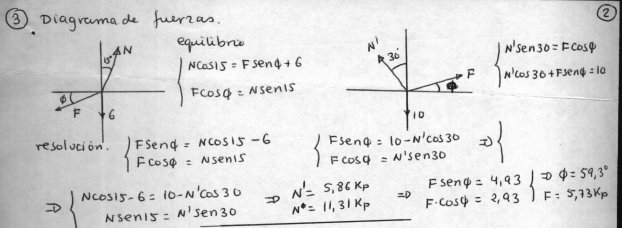 ③ Diagrama de fuerzas. ②
equilibrio
N
15
φ
F
6
{ Ncos15 = Fsenφ + 6
Fcosφ = Nsen15
N'
30
F
φ
10
{ N'sen30 = Fcosφ
N'cos30 + Fsenφ = 10
resolución. { Fsenφ = Ncos15 - 6
Fcosφ = Nsen15
{ Fsenφ = 10 - N'cos30 ⇒ {
Fcosφ = N'sen30
⇒ { Ncos15 - 6 = 10 - N'cos30
Nsen15 = N'sen30
⇒ N' = 5,86 Kp
N = 11,31 Kp
⇒ Fsenφ = 4,93
F·cosφ = 2,93
} ⇒ φ = 59,3°
F = 5,73 Kp